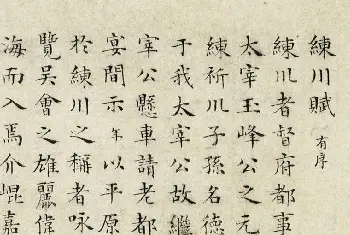 練川賦 有序
練川者督府都事
太宰玉峰公之元
練祈川子孫名德
于我太宰公故繼
宰公懸車請老都
宴間示年以平原
於練川之稱者咏
覽吳會之雄麗偉
海而入焉介崑嘉